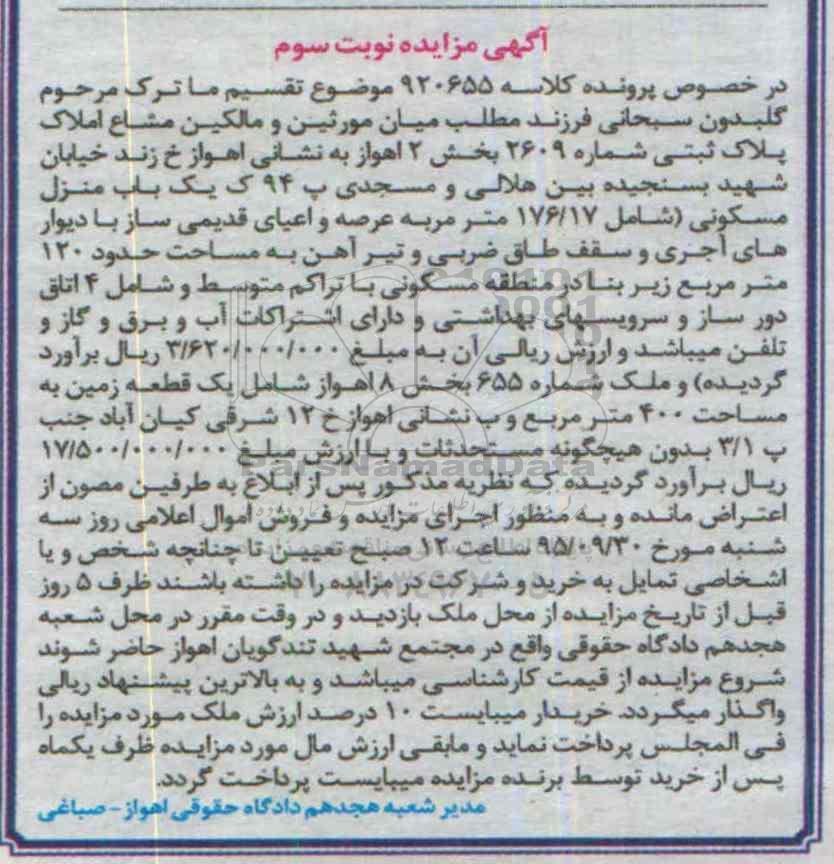 آگهی مزایده نوبت سوم
در خصوص پرونده کلاسه ۹۲۰۶۵۵ موضوع تقسیم ما ترک مرحوم
گلبدون سبحانی فرزند مطلب میان مورثین و مالکین مشاع املاک
پلاک ثبتی شماره ۲۶۰۹ بخش ۲ اهواز به نشانی اهواز خ زند خیابان
شهید بسنجیده بین هلالی و مسجدی پ ۹۴ ک یک باب منزل
مسکونی (شامل ۱۷۶/۱۷ متر مربه عرصه و اعیای قدیمی ساز با دیوار
های آجری و سقف طاق ضربی و تیر آهن به مساحت حدود ۱۲۰
متر مربع زیر بنا در منطقه مسکونی با تراکم متوسط و شامل ۴ اتاق
دور ساز و سرویسهای بهداشتی و دارای اشتراکات آب و برق و گاز و
تلفن میباشد و ارزش ریالی آن به مبلغ ۳/۶۲۰/۰۰۰/۰۰۰ ریال برآورد
گردیده) و ملک شماره ۶۵۵ بخش ۸ اهواز شامل یک قطعه زمین به
مساحت ۴۰۰ متر مربع و ب نشانی اهواز خ ۱۲ شرقی کیان آباد جنب
پ ۳/۱ بدون هیچگونه مستحدثات و با ارزش مبلغ ۱۷/۵۰۰/۰۰۰/۰۰۰
ParsNamadData
ریال برآورد گردیده که نظریه مذکور پس از ابلاغ به طرفین مصون از
اعتراض مانده و به منظور اجرای مزایده و فروش اموال اعلامی روز سه
شنبه مورخ ۹۵/۰۹/۳۰ ساعت ۱۲ صبح تعیین تا چنانچه شخص و یا
اشخاصی تمایل به خرید و شرکت در مزایده را داشته باشند ظرف ۵ روز
قبل از تاریخ مزایده از محل ملک بازدید و در وقت مقرر در محل شعبه
هجدهم دادگاه حقوقی واقع در مجتمع شهید تندگویان اهواز حاضر شوند
شروع مزایده از قیمت کارشناسی میباشد و به بالاترین پیشنهاد ریالی
واگذار میگردد. خریدار میبایست ۱۰ درصد ارزش ملک مورد مزایده را
فی المجلس پرداخت نماید و مابقی ارزش مال مورد مزایده ظرف یکماه
پس از خرید توسط برنده مزایده میبایست پرداخت گردد.
مدیر شعبه هجدهم دادگاه حقوقی اهواز - صباغی